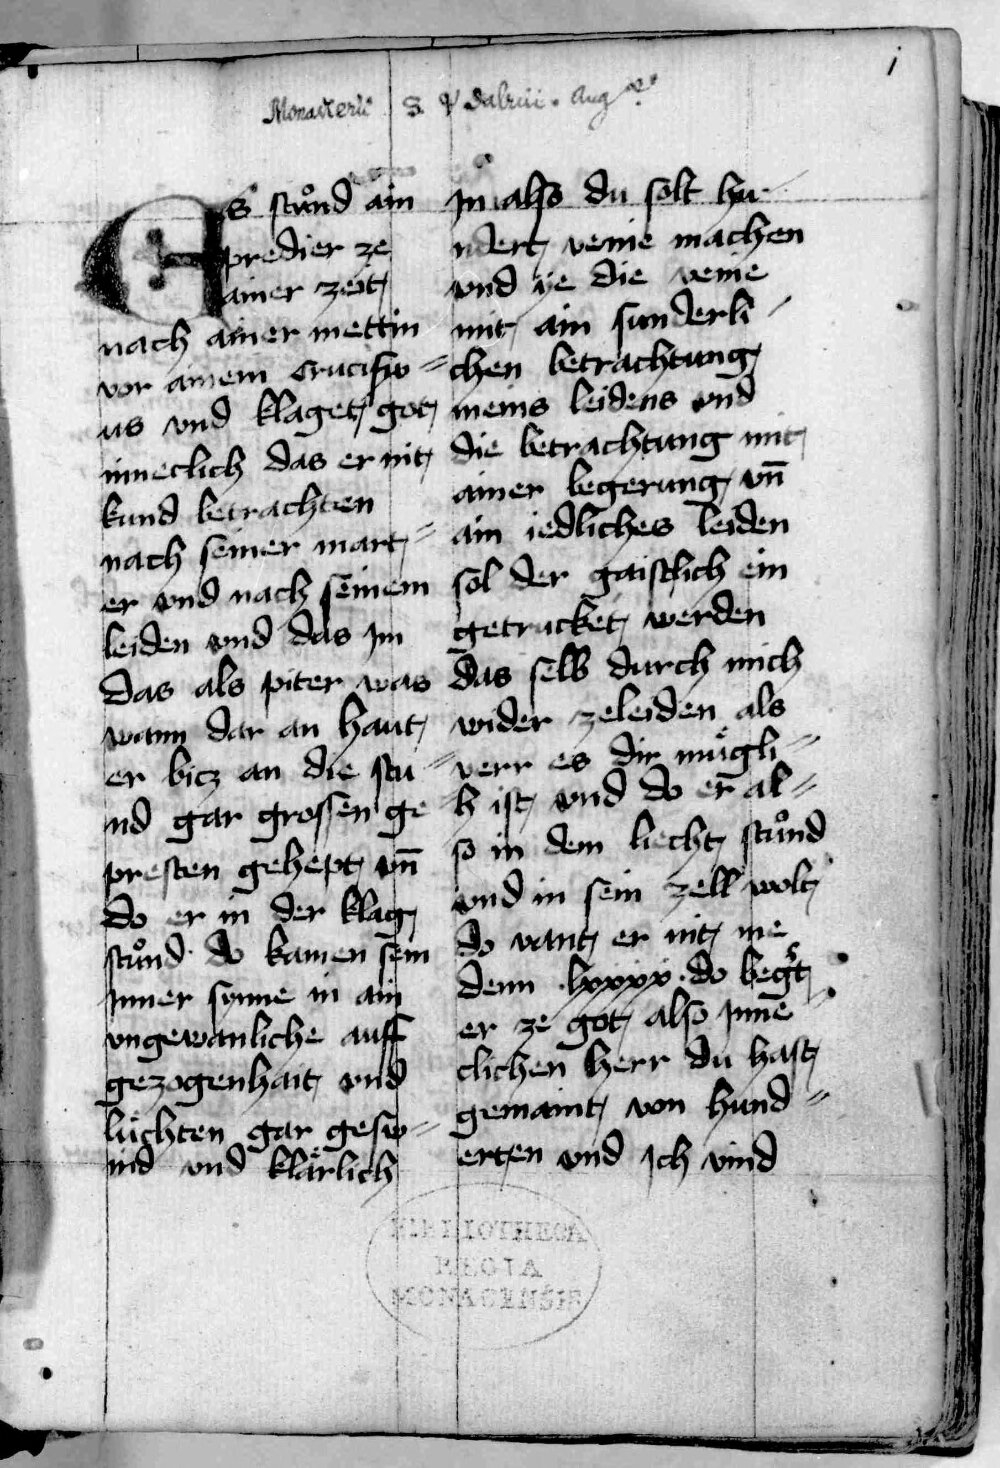 i
Monasterii S. Udalrici Aug.
Es stuͦnd ain
predier ze
ainer zeit
nach ainer mettin
vor ainem crucifix=
us vnd klaget got
inneclich das er nit
kund betrachten
nach seiner mart=
er vnd nach seinem
leiden vnd das Im
das als piter was
wann dar an haut
er bicz an die stu=
nd gar grossen ge
presten gehept vn̄
do er in der klag
stuͦnd · do kamen sein
Inner synne in ain
vngewanliche auff
gezogenhait vnd
luͤchten gar gesw=
ind vnd klaͤrlich
In also du solt hu
ndert venie machen
vnd ye die venie
mit ain sunderli
chen betrachtung
meins leidens vnd
die betrachtung mit
ainer begerung vn̄
ain iedliches leiden
sol der gaistlich ein
getrucket werden
das selb durch mich
wider zeleiden als
verr es dir muͤgli=
h ist vnd do er al=
so in dem liecht stuͦnd
vnd in sein zell wolt
do vant er nit me
denn · lxxxx · do beg't
er ze got also Inne=
clichen herr du hast
gemaint von hund=
erten vnd Ich vind
BIBLIOTHECA
REGIA
MONACENSIS